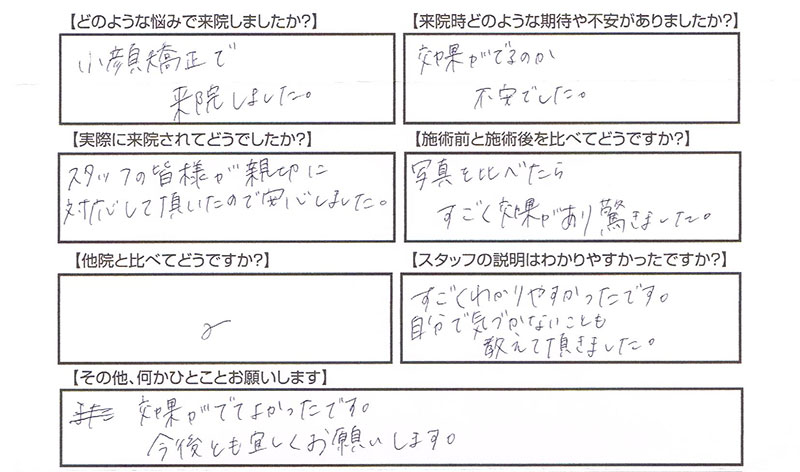 【どのような悩みで来院しましたか?】
小顔矯正で
来院しました。
【来院時どのような期待や不安がありましたか?】
効果がでるのか
不安でした。
【実際に来院されてどうでしたか?】
スタッフの皆様が親切に
対応して頂いたので安心しました。
【施術前と施術後を比べてどうですか?】
写真を比べたら
すごく効果があり驚きました。
【他院と比べてどうですか?】
【スタッフの説明はわかりやすかったですか?】
すごくわかりやすかったです。
自分で気づかないことも
教えて頂きました。
【その他、何かひとことお願いします】
効果がでてよかったです。
今後とも宜しくお願いします。